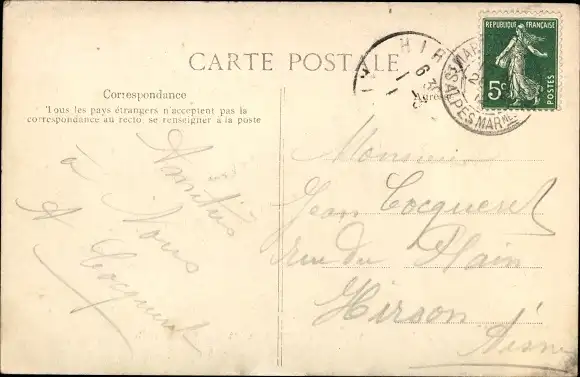 CARTE POSTALE
Correspondance
Tous les pays étrangers n'acceptent pas la
correspondance au recto, se renseigner à la poste
Adres
REPUBLIQUE FRANÇAISE
5c
POSTES
HIR
6
1
S ALPES MAR
Amitiés
à Vous
A Cocquerel
Monsieur
Jean Cocquerel
rue du Plain
Hirson
Aisne